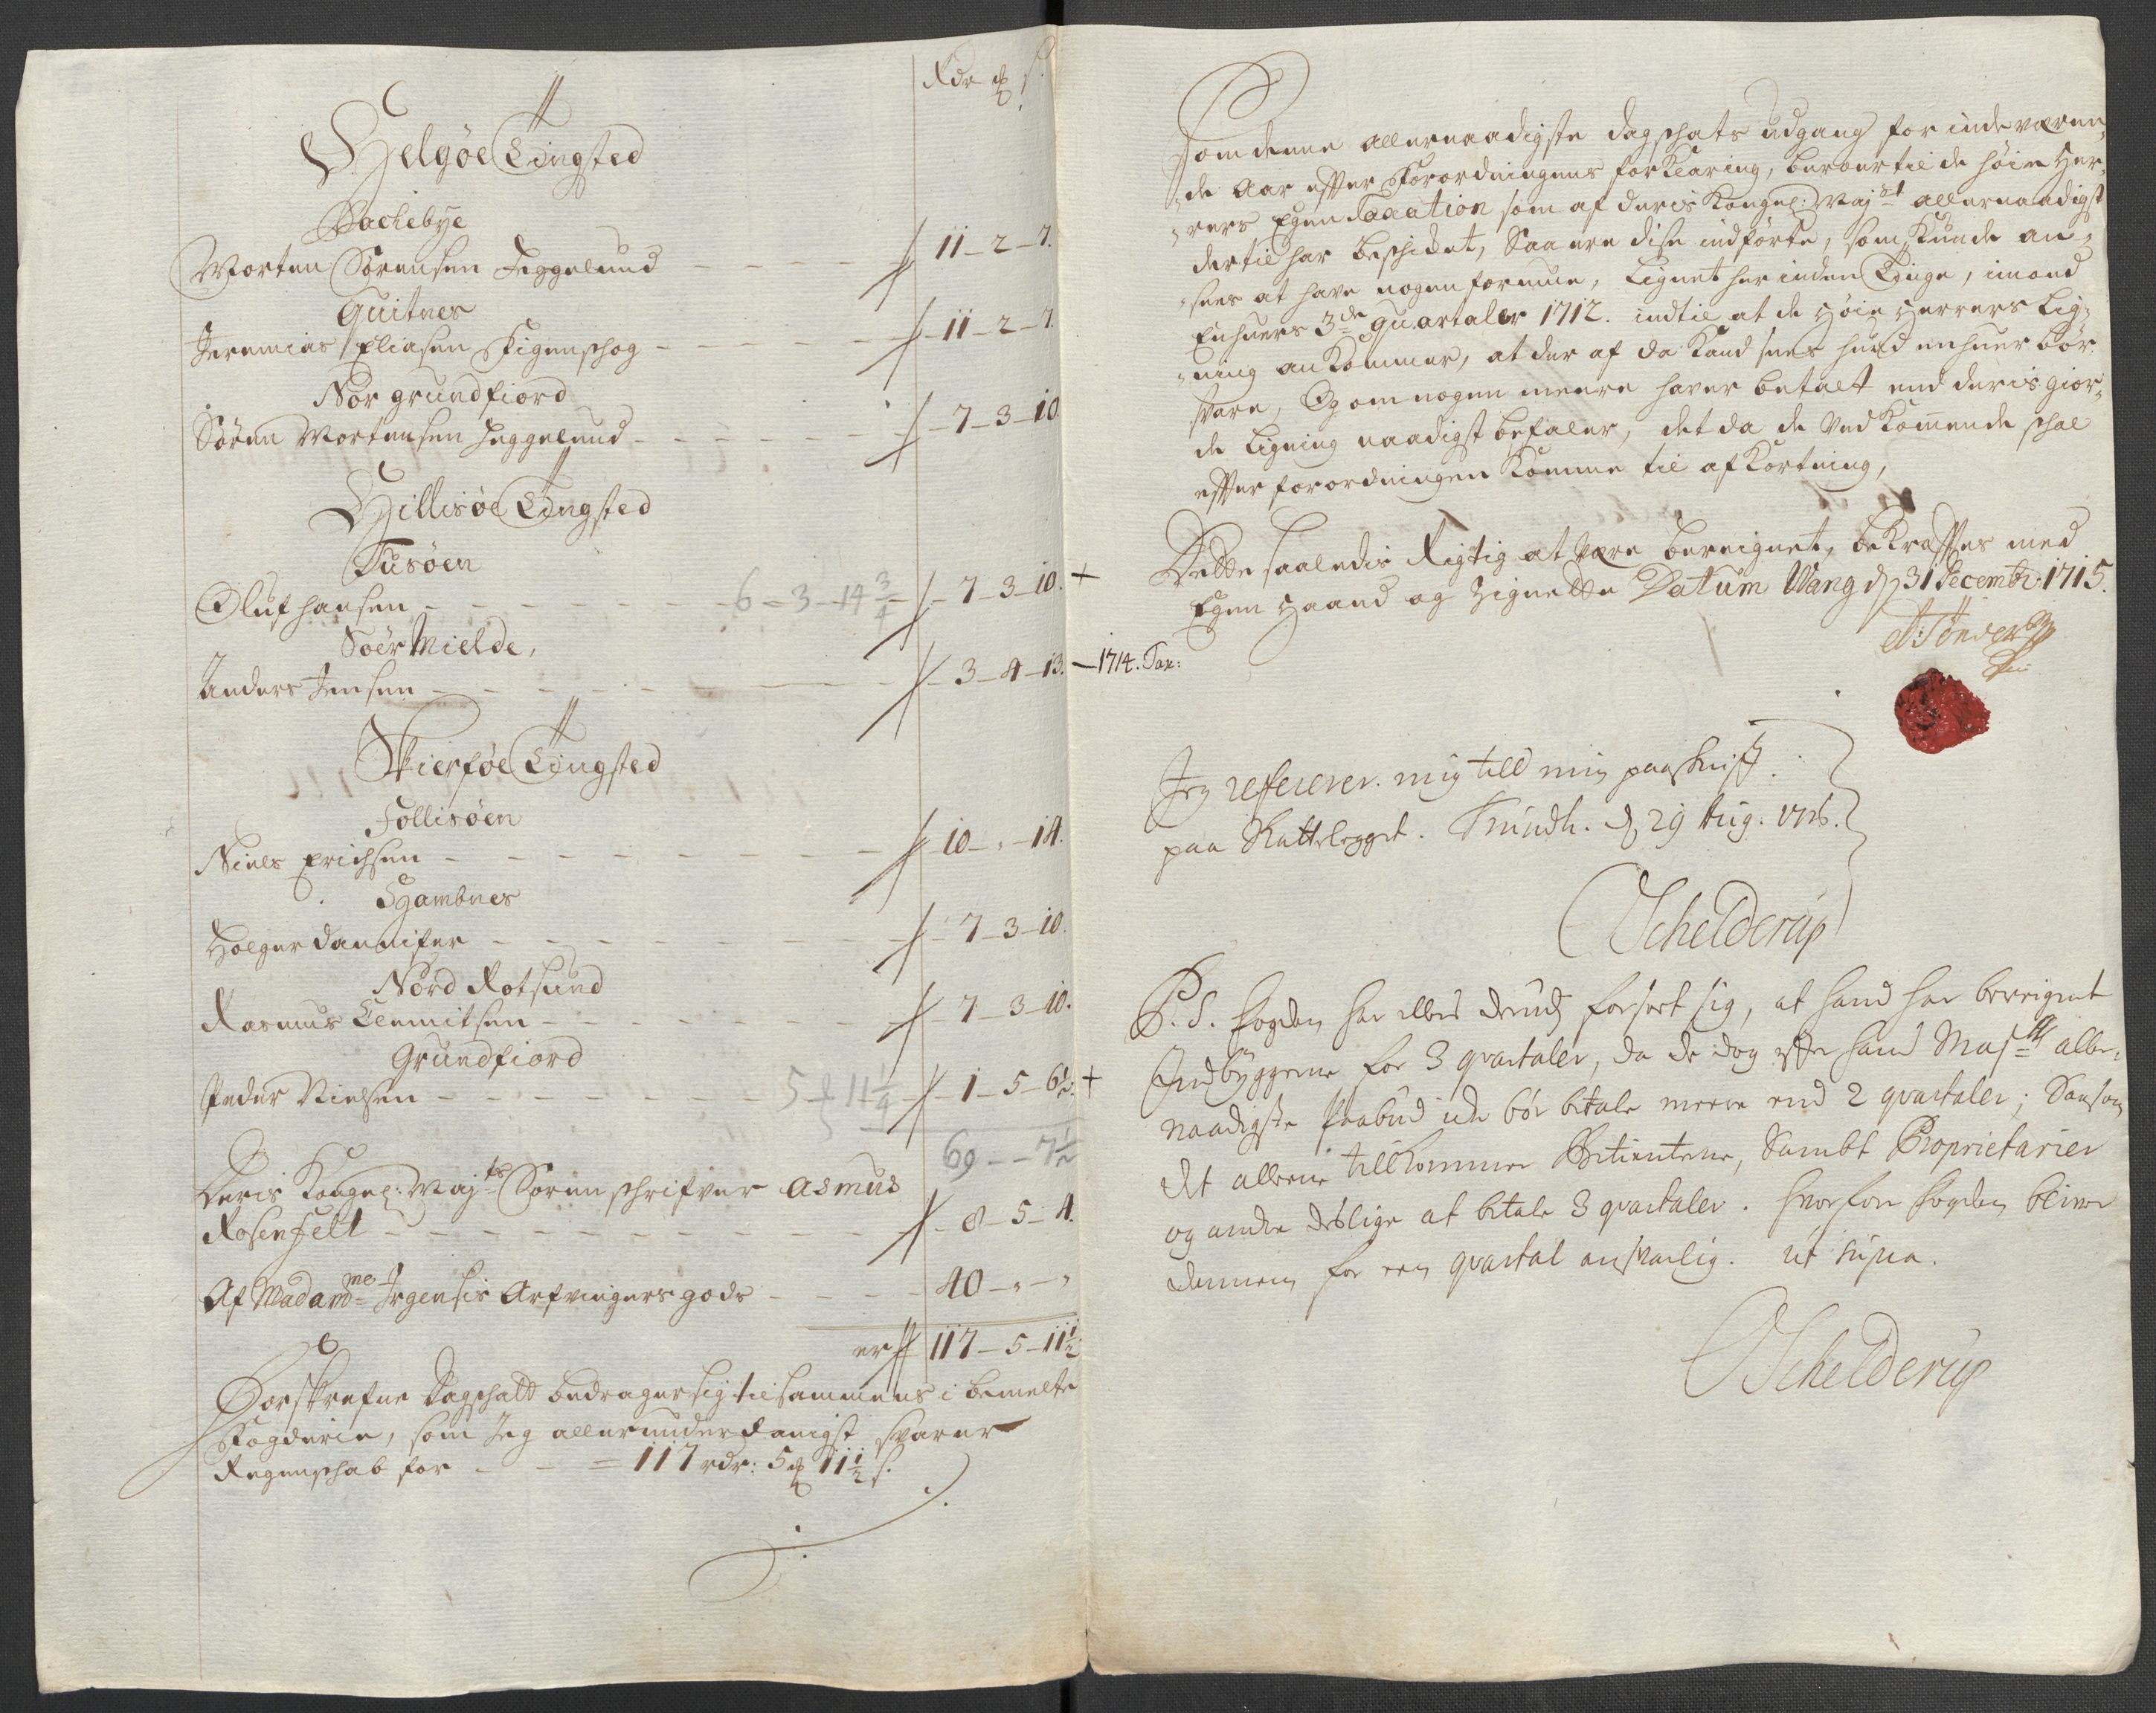 Rdr ȝ s.
Helgøe Tingsted
Bachebye
Morten Sørensen Heggelund - - - - 11 - 2 - 7.
Quitnes
Jeremias Eliasen Figenschog - - - - - 11 - 2 - 7.
Nor grundfiord
Sören Mortensen Heggelund - - - - - 7 - 3 - 10
Hillisøe Tingsted
Tusøen
Oluf hansen - - - - - 6 - 3 - 14 3/4 - 7 - 3 - 10. +
Soer Mielde,
Anders Jensen - - - - - 3 - 4 - 13. - 1714. Tax:
Skierføe Tingsted
Follisøen
Niels Erichsen - - - - - 10 - , - 14.
Hambnes
Holger Dannifer - - - - - 7 - 3 - 10.
Nord Rotsund
Rasmus Clemitsen - - - - - 7 - 3 - 10.
Grundfiord
Peder Nielsen - - - - - 5 11 1/4 - 1 - 5 - 6 1/2. +
69 - - 7 1/2
Deris Kongel: Majts Sorenschrifver Asmus
Rosenfelt - - - - - 8 - 5 - 4.
Af Madamme Irgensis Arfvingers gods - - - - 40 - , - ,
er 117 - 5 - 11 1/2
Forskrefne Dagschatt bedrager sig tilsammens i bemelte
Fogderie, som Jeg allerunderdanigst svarer
Regenschab for - - - = 117 rdr: 5 ȝ 11 1/2 s.
Som denne allernaadigste dagschats udgang for indeværen,
de Aar efter Forordningens forklaring, beroer til de høie Her,
rers Egen Taxation som af deris Kongel: Majst allernaadigst
dertil har beschicket, Saa ere dise indförte, som kunde an,
sees at have nogen formue, Lignet her inden Tinge, imod
Enhuers 3de quartaler 1712. indtil at de Høie Herrers Lig,
ning ankommer, at der af da kand sees huad enhuer bör
svare, Og om nogen meere haver betalt end deris gior,
de Ligning naadigst befaler, det da de Vedkommende schal
efter forordningen komme til afkortning,
Dette saaledis Rigtig at være bereignet, bekræftes med
Egen Haand og Zignette Datum Wang d 31 Decembr: 1715.
A: Tönder
Jeg refererer mig till min paaskrift
paa Skattelegget. Trundh. d 29 Aug. 1716.
OSchelderup
P.S. fogden har ellers derudj forseet sig, at hand har bereignet
Indbyggerne for 3 qvartaler, da de dog efter hans Majts aller,
naadigste Paabud icke bør betale meere end 2 qvartaler; Saasom
det alleene tillkommer Betienterne, Sambt Proprietarier
og andre deslige at betale 3 qvartaler. hvorfore fogden bliver
dennem for een qvartal ansvarlig. ut supra.
OSchelderup